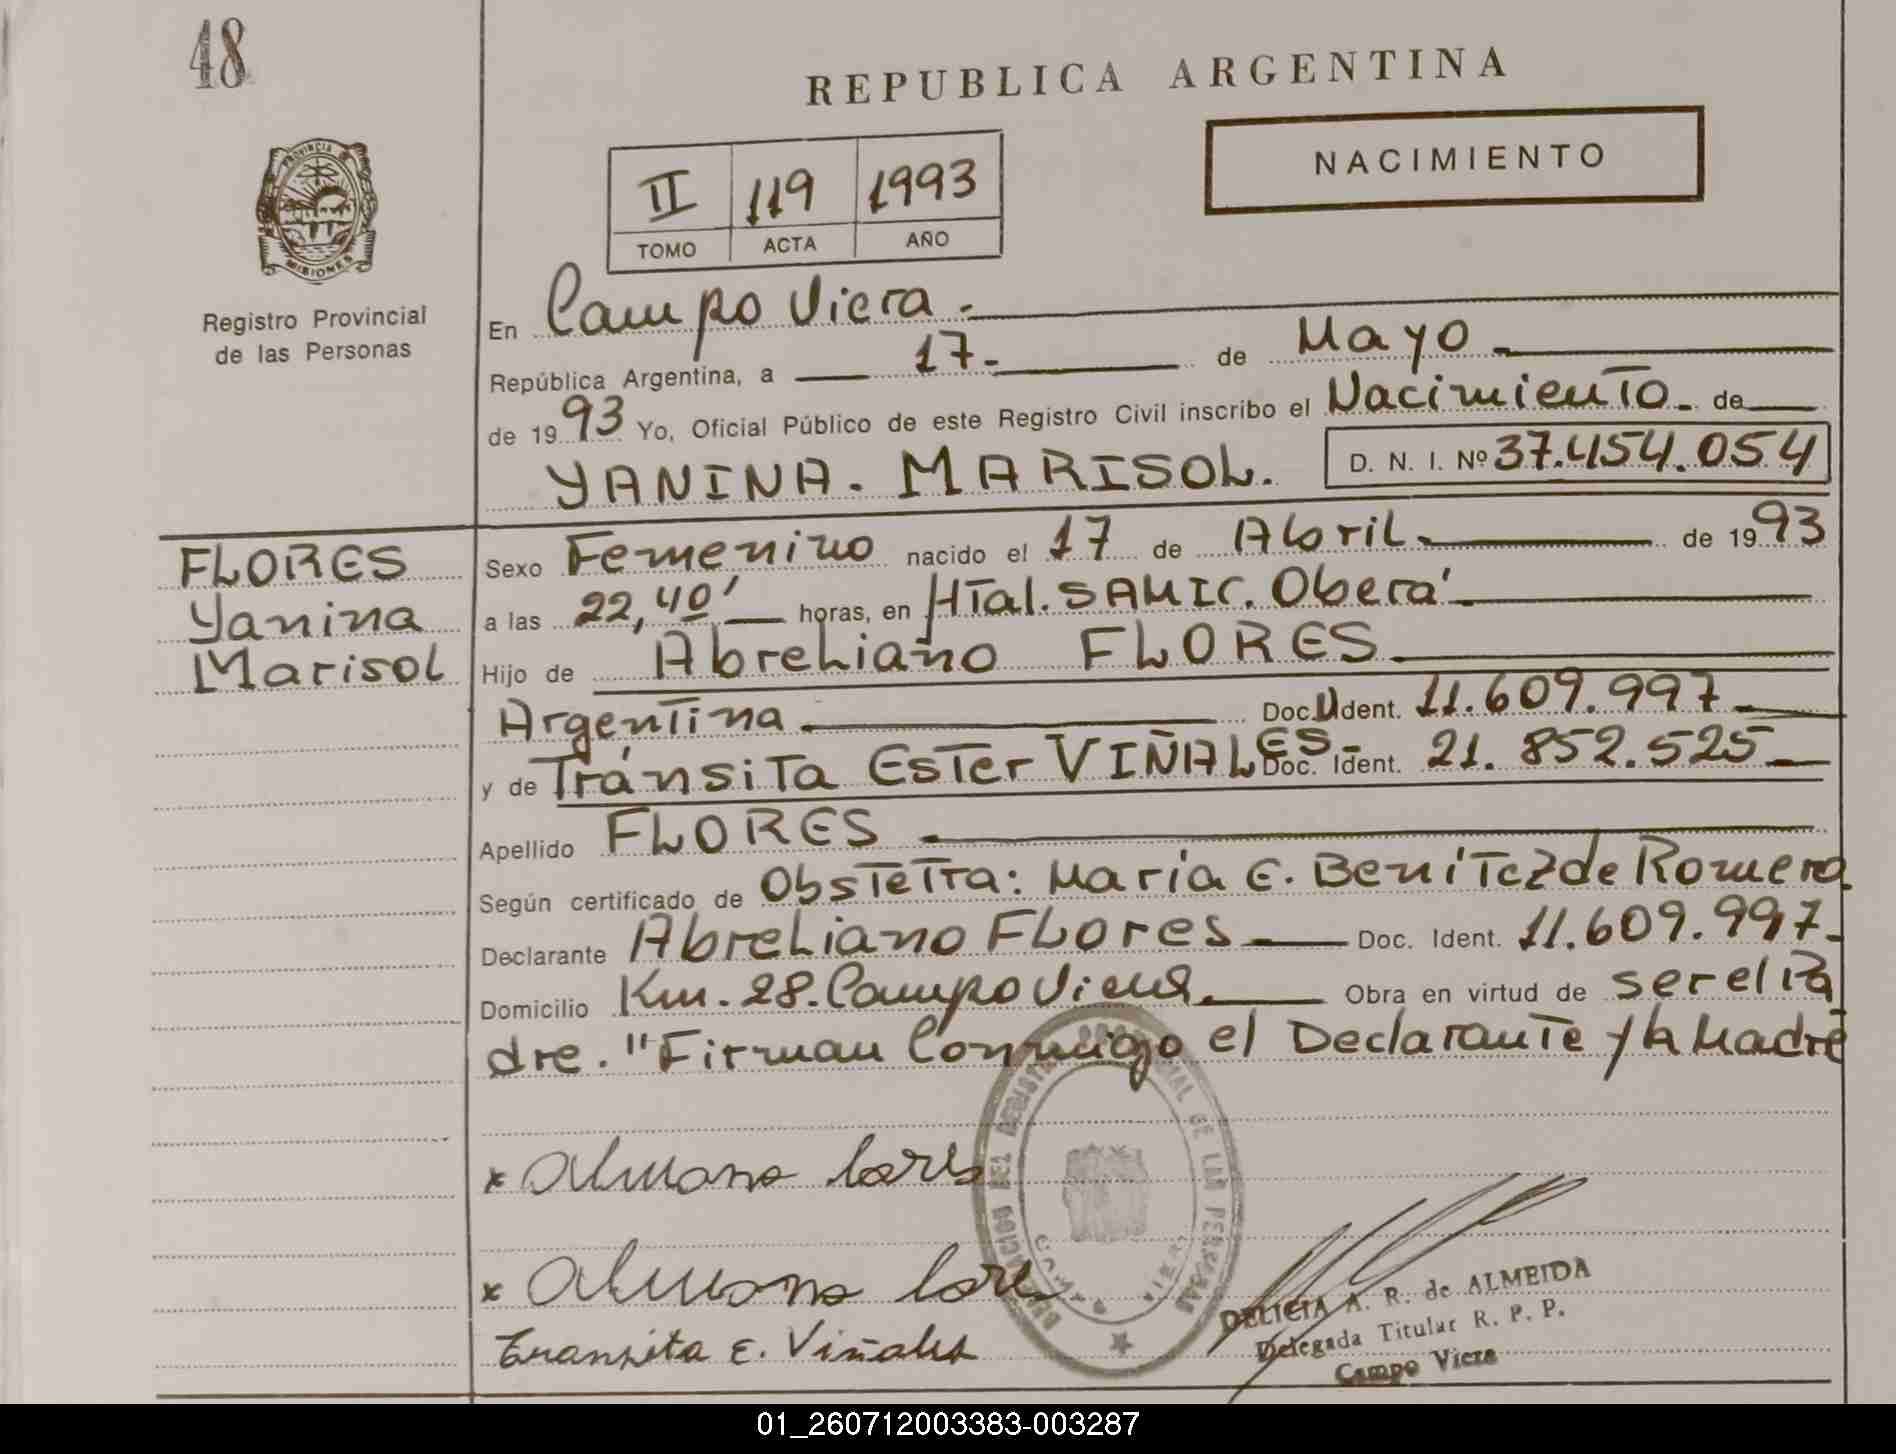 48
REPUBLICA ARGENTINA
NACIMIENTO
II 119 1993
TOMO ACTA AÑO
PROVINCIA DE
MISIONES
Registro Provincial
de las Personas
En Campo Viera.
República Argentina, a 17- de Mayo
de 1993 Yo, Oficial Público de este Registro Civil inscribo el Nacimiento de
YANINA. MARISOL. D. N. I. Nº 37.454.054
FLORES
Yanina
Marisol
Sexo Femenino nacido el 17 de Abril. de 1993
a las 22,40' horas, en HTal. SAMIC. Oberá
Hijo de Abreliano FLORES
Argentina Doc. U Ident. 11.609.997
y de Tránsita Ester VIÑALES Doc. Ident. 21.852.525
Apellido FLORES
Según certificado de Obstetra: Maria E. Benítez de Romero
Declarante Abreliano Flores Doc. Ident. 11.609.997-
Domicilio Km. 28. Campo Viera Obra en virtud de ser el Pa
dre. "Firman Conmigo el Declarante y la Madre
x
x
Transita E. Viñales
DELEGACION DEL REGISTRO PROVINCIAL DE LAS PERSONAS
CAMPO VIERA
DELICIA A. R. de ALMEIDA
Delegada Titular R. P. P.
Campo Viera
01_260712003383-003287